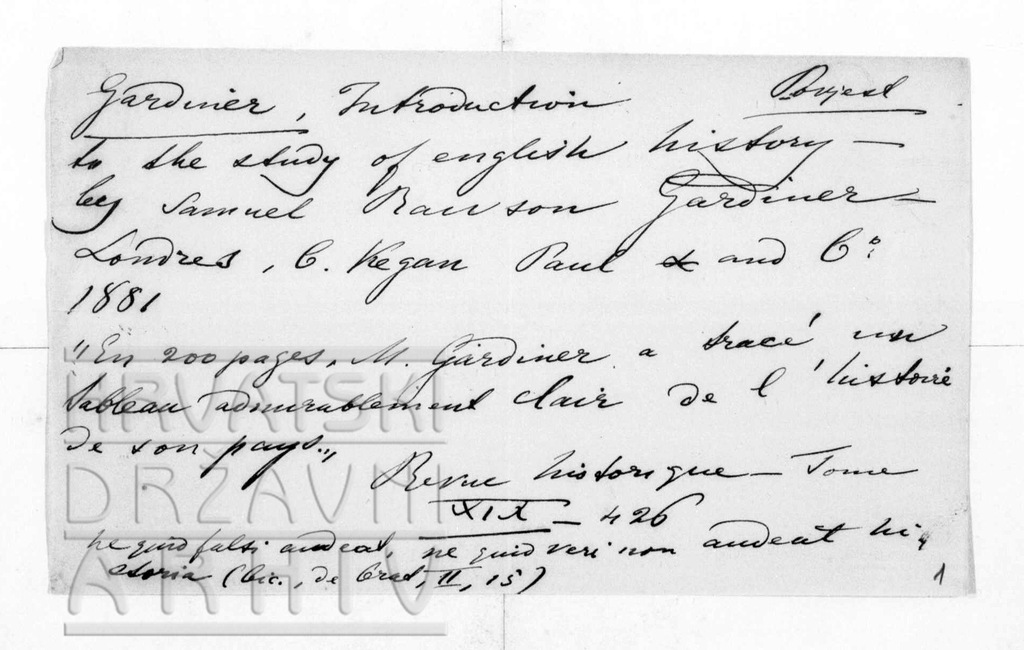 Gardiner, Introduction Povjest
to the study of english history —
by Samuel Rawson Gardiner —
Londres, C. Kegan Paul & and Co:
1881
"En 200 pages, M. Gardiner a tracé un
tableau admirablement clair de l'histoire
de son pays.„
Revue historique — Tome
XIX — 426
ne quid falsi audeat, ne quid veri non audeat hi-
storia (Cic., de Orat, II, 15)
1
HRVATSKI
DRŽAVNI
ARHIV